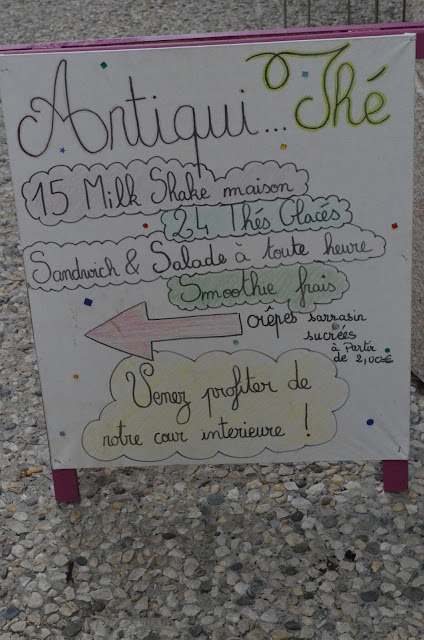 Antiqui...Thé
15 Milk Shake maison
24 Thés Glacés
Sandwich & Salade à toute heure
Smoothie frais
crêpes sarrasin
sucrées
à Partir
de 2,00€
Venez profiter de
notre cour interieure !